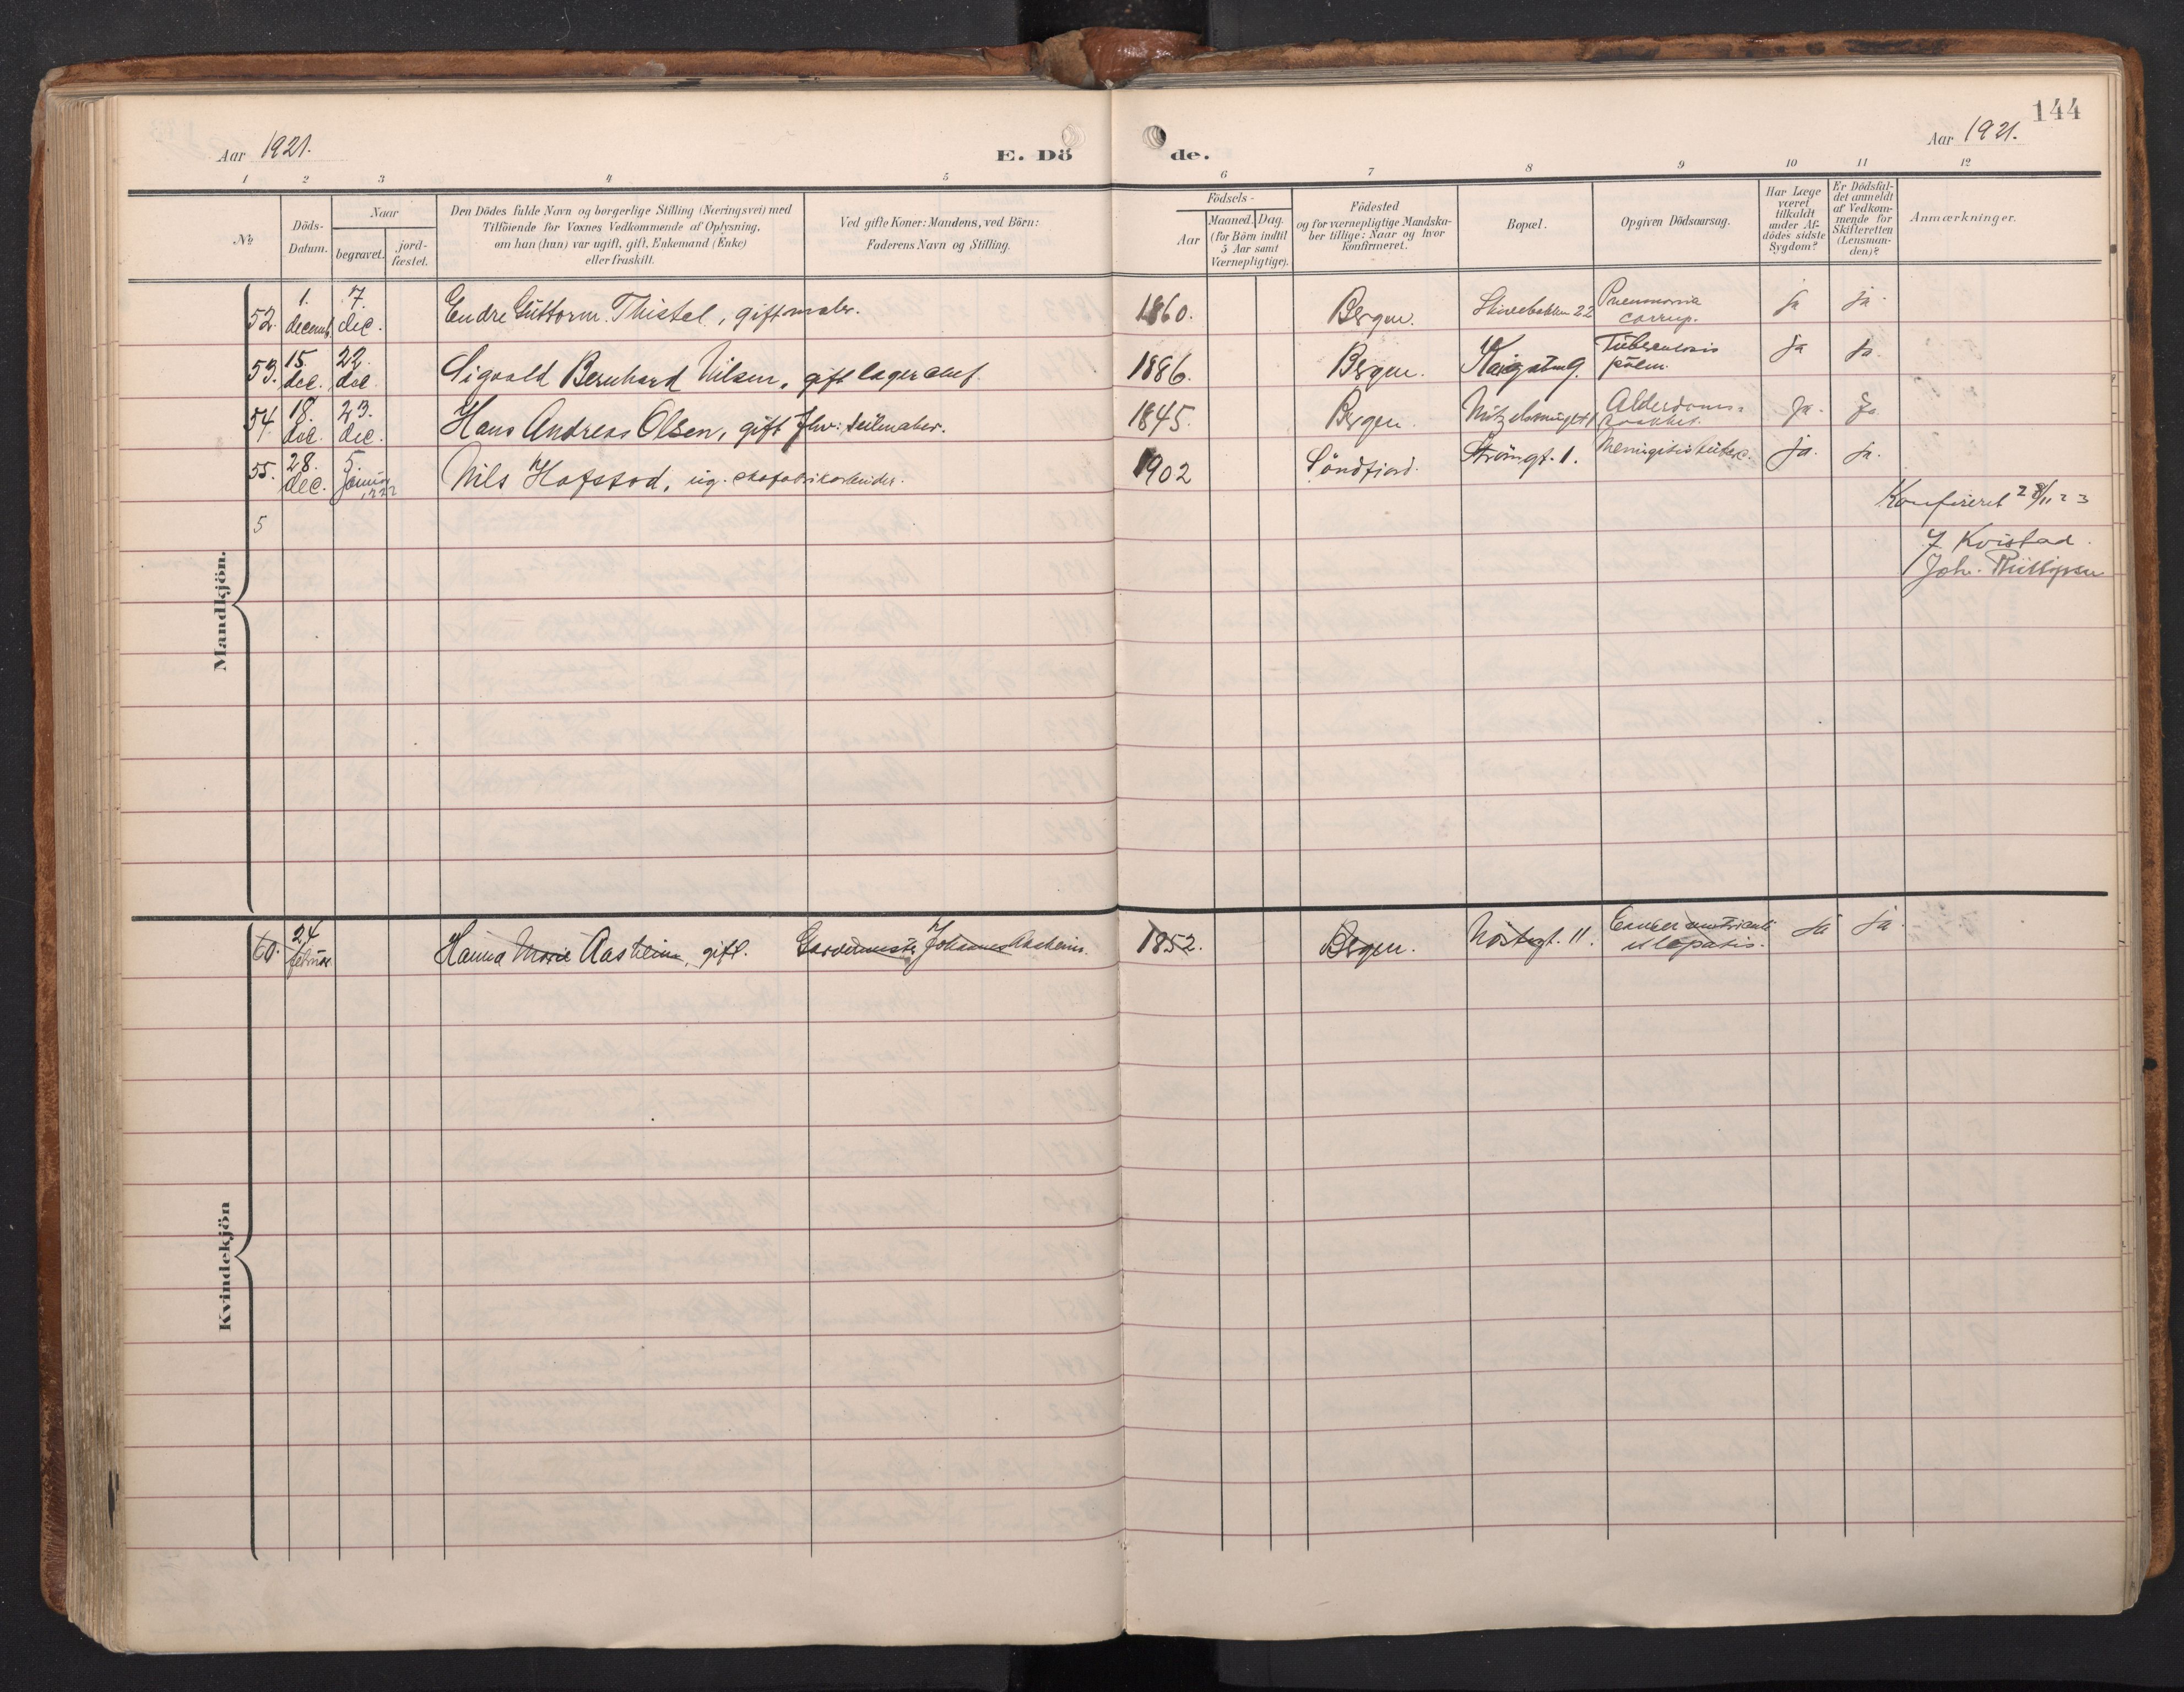 144
Aar 1921.
E. Dö
de.
Aar 1921.
1 2 3 4 5 6 7 8 9 10 11 12
№
Döds-
Datum.
Naar
begravet.
jord-
fæstet.
Den Dödes fulde Navn og borgerlige Stilling (Næringsvei) med
Tilföiende for Voxnes Vedkommende af Oplysning,
om han (hun) var ugift, gift, Enkemand (Enke)
eller fraskilt.
Ved gifte Koner: Mandens, ved Börn:
Faderens Navn og Stilling.
Födsels-
Aar
Maaned. Dag.
(for Börn indtil
5 Aar samt
Værnepligtige).
Födested
og for værnepligtige Mandska-
ber tillige: Naar og hvor
konfirmeret.
Bopæl.
Opgiven Dödsaarsag.
Har Læge
været
tilkaldt
under Af-
dödes sidste
Sygdom?
Er Dödsfal-
det anmeldt
af Vedkom-
mende for
Skifteretten
(Lensman-
den)?
Anmærkninger.
Mandkjön.
52. 1. decemb. 7. dec. Endre Guttorm Thistel, gift maler. 1860. Bergen. 22 Pneumonia ja ja.
53. 15. dec. 22. dec. Sigvald Bernhard Nilsen, gift lager 1886. Bergen. Tuberculosis pulm. ja ja.
54. 18. dec. 23. dec. Hans Andreas Olsen, gift fhv: seilmaker. 1845. Bergen. Alderdoms- Ja. Ja
55. 28. dec. 5. januar 1922 Nils Hafstad, ug. skofabrikarbeider. 1902 Söndfjord. Strömgt. 1. Meningitis tuberc. ja. ja.
5
Konfereret 28/11 23
J Kvistad.
Joh.
Kvindekjön
60. 24 februar Hanna Marie Aasheim, gift. Garvermester Johannes Aasheim. 1852. Bergen. Nöstegt. 11. Cancer ventriculi ja ja.